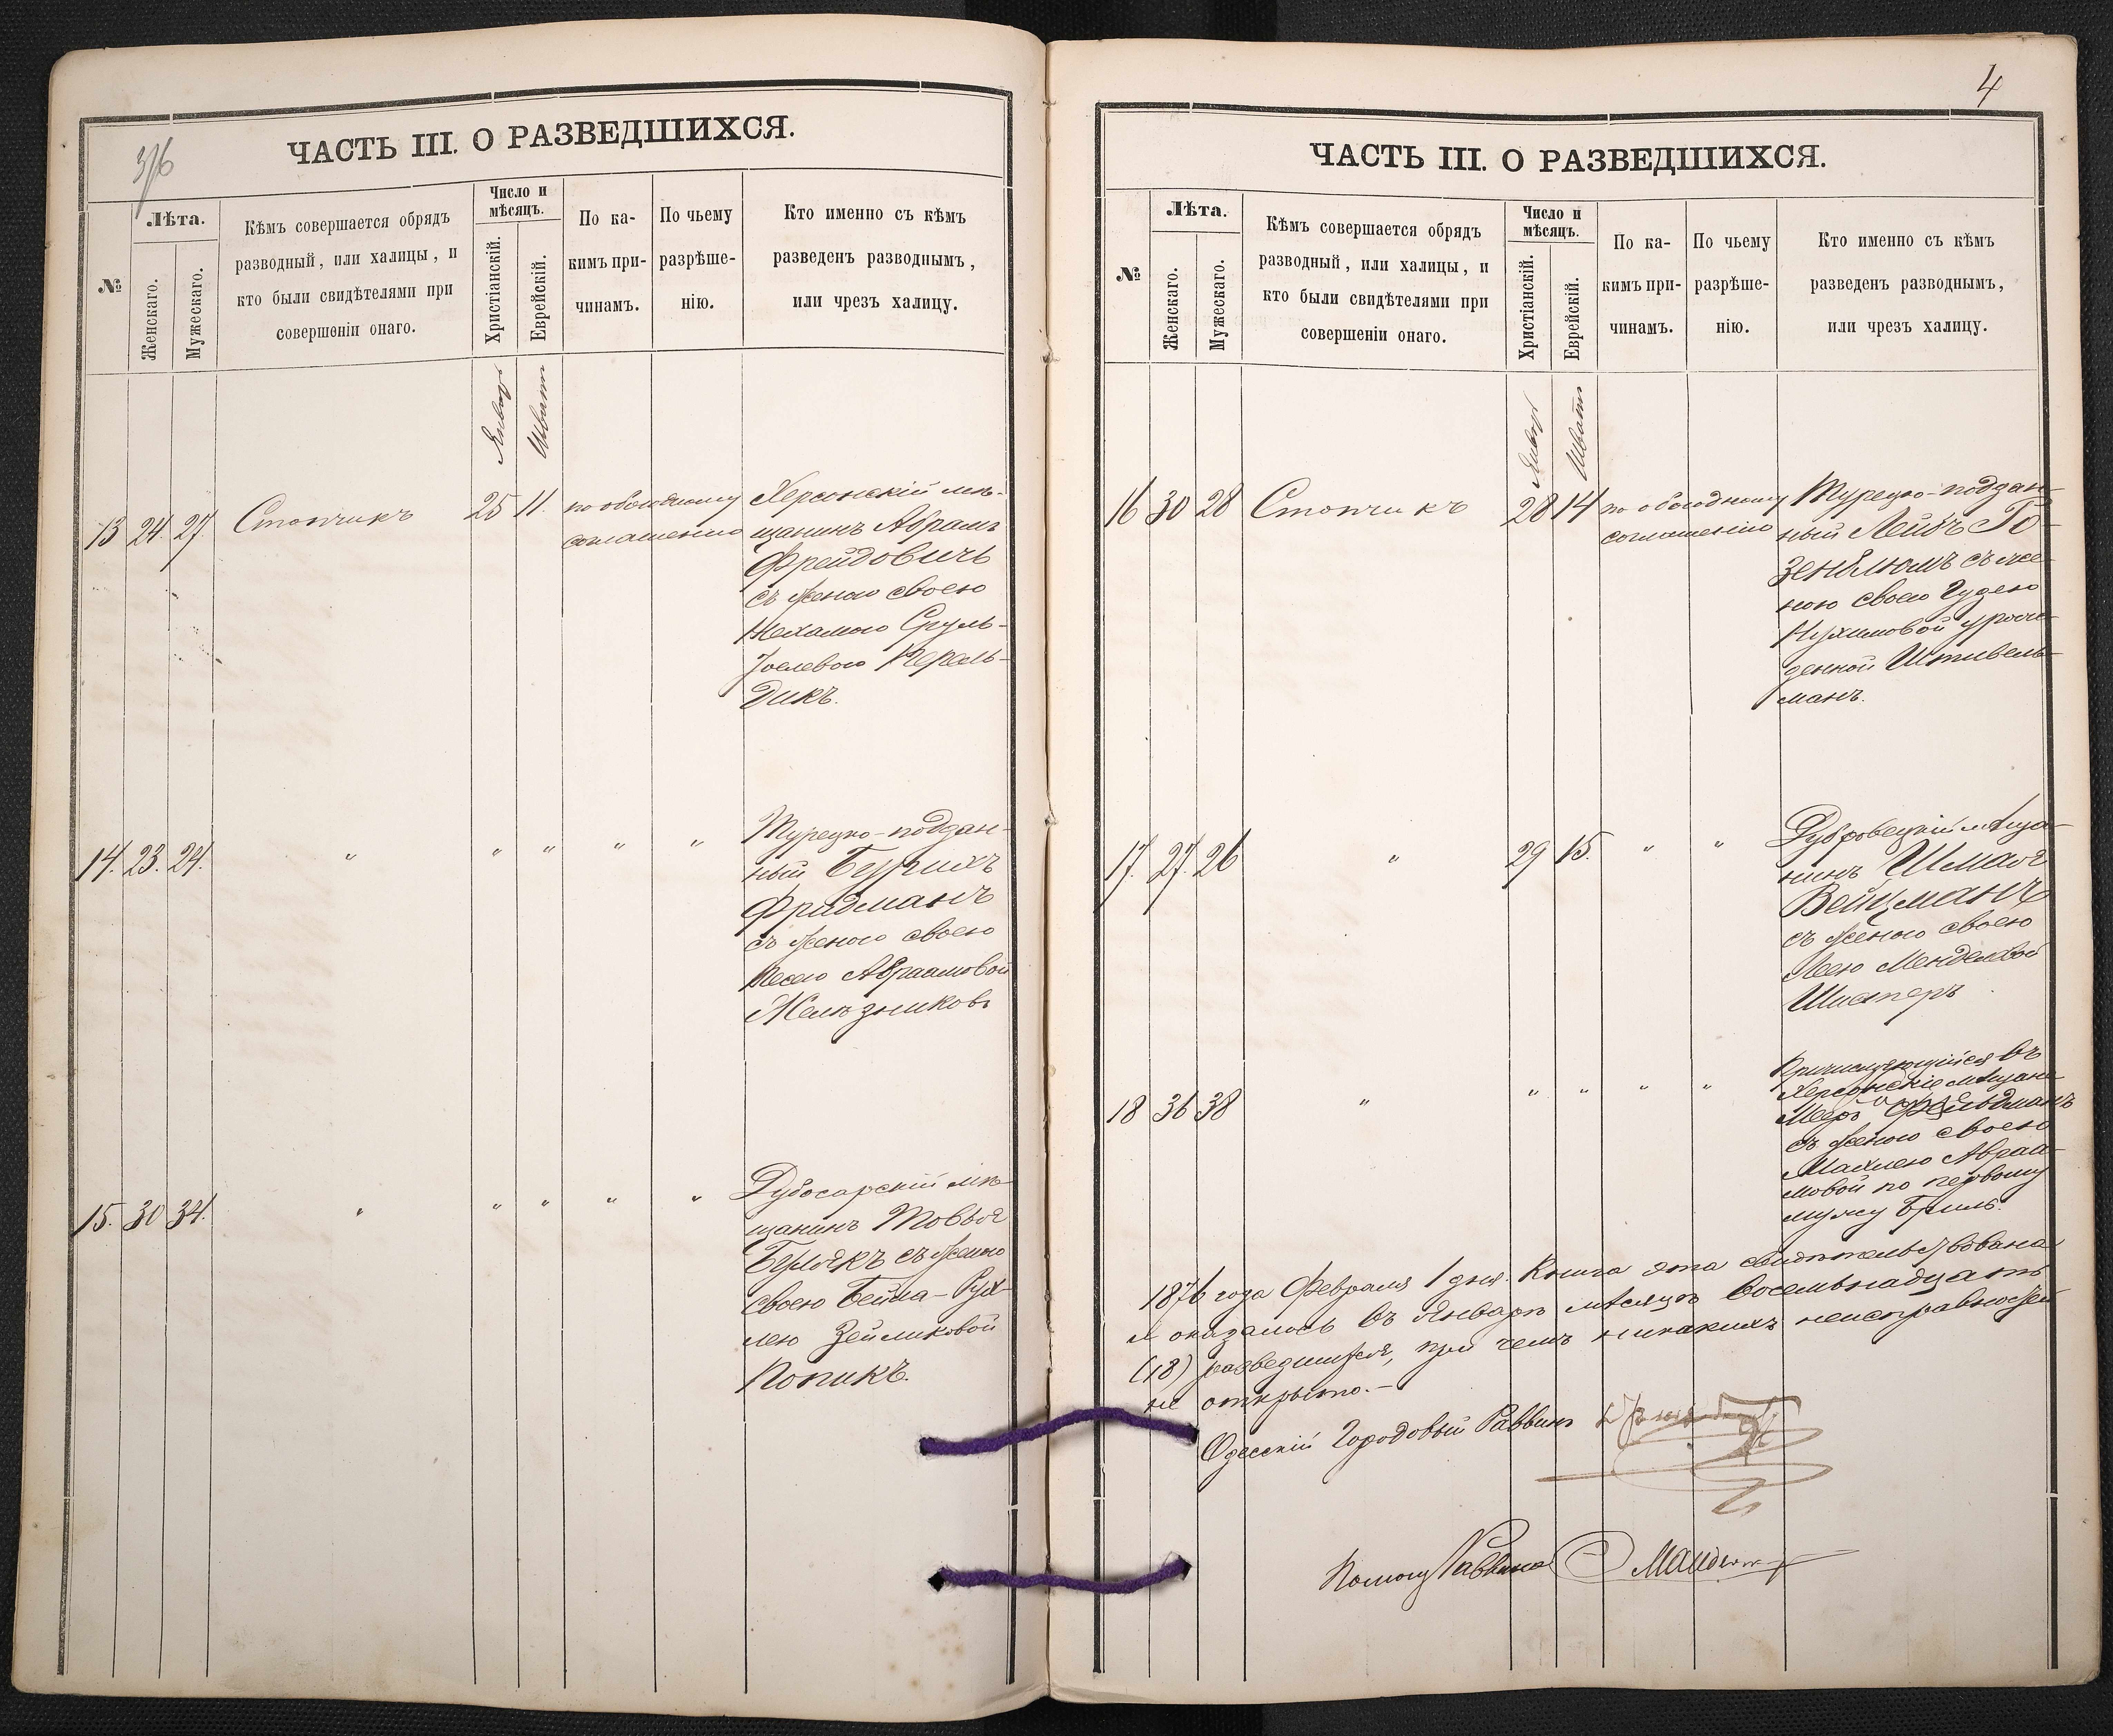 376
ЧАСТЬ III. О РАЗВЕДШИХСЯ.
№
Лѣта.
Женскаго.
Мужескаго.
Кѣмъ совершается обрядъ
разводный, или халицы, и
кто были свидѣтелями при
совершеніи онаго.
Число и
мѣсяцъ.
Христіанскій.
Еврейскій.
По ка-
кимъ при-
чинамъ.
По чьему
разрѣше-
нію.
Кто именно съ кѣмъ
разведенъ разводнымъ,
или чрезъ халицу.
Январь
Шватъ
13 24. 27 Стопчикъ 25 11. по обоюдному
соглашенію
Херсонскій мѣ-
щанинъ Абрамъ
Фрейдовичъ
съ женою своею
Нехамою Сруль-
Іоелевою Перель-
Дикъ.
14. 23. 24. " " " " "
Турецко-поддан-
ный Берихъ
Фридманъ
съ женою своею
Песею Абрамовой
Желѣзниковъ
15. 30 34. " " " " "
Дубосарскій мѣ-
щанинъ Товья
Берлякъ съ женою
своею Бейла-Рух-
лею Зейликовой
Попикъ.
4
ЧАСТЬ III. О РАЗВЕДШИХСЯ.
№
Лѣта.
Женскаго.
Мужескаго.
Кѣмъ совершается обрядъ
разводный, или халицы, и
кто были свидѣтелями при
совершеніи онаго.
Число и
мѣсяцъ.
Христіанскій.
Еврейскій.
По ка-
кимъ при-
чинамъ.
По чьему
разрѣше-
нію.
Кто именно съ кѣмъ
разведенъ разводнымъ,
или чрезъ халицу.
Январь
Шватъ
16 30 28 Стопчикъ 28 14 по обоюдному
соглашенію
Турецко-поддан-
ный Лейбъ Ро-
зенблюмъ съ же-
ною своею
Нухимовой урож-
денной Штивель-
манъ.
17. 27. 26 " 29 15. " "
Дубровецкій мѣща-
нинъ Шмая
Вейцманъ
съ женою своею
Леею Менделевой
Шистеръ
18 36 38 " " " " "
Причисляющійся въ
Херсонскіе мѣщане
Меръ Фельдманъ
съ женою своею
Махлею Абрам-
мовой по первому
мужу Бриль.
1876 года Февраля 1 дня. Книга эта свидѣтельствована
и оказалось въ Январѣ мѣсяцѣ восемьнадцать
(18) разведшихся, при чемъ никакихъ неисправностей
не открыто.-
Одесскій Городовый Раввинъ
Помощ Раввина